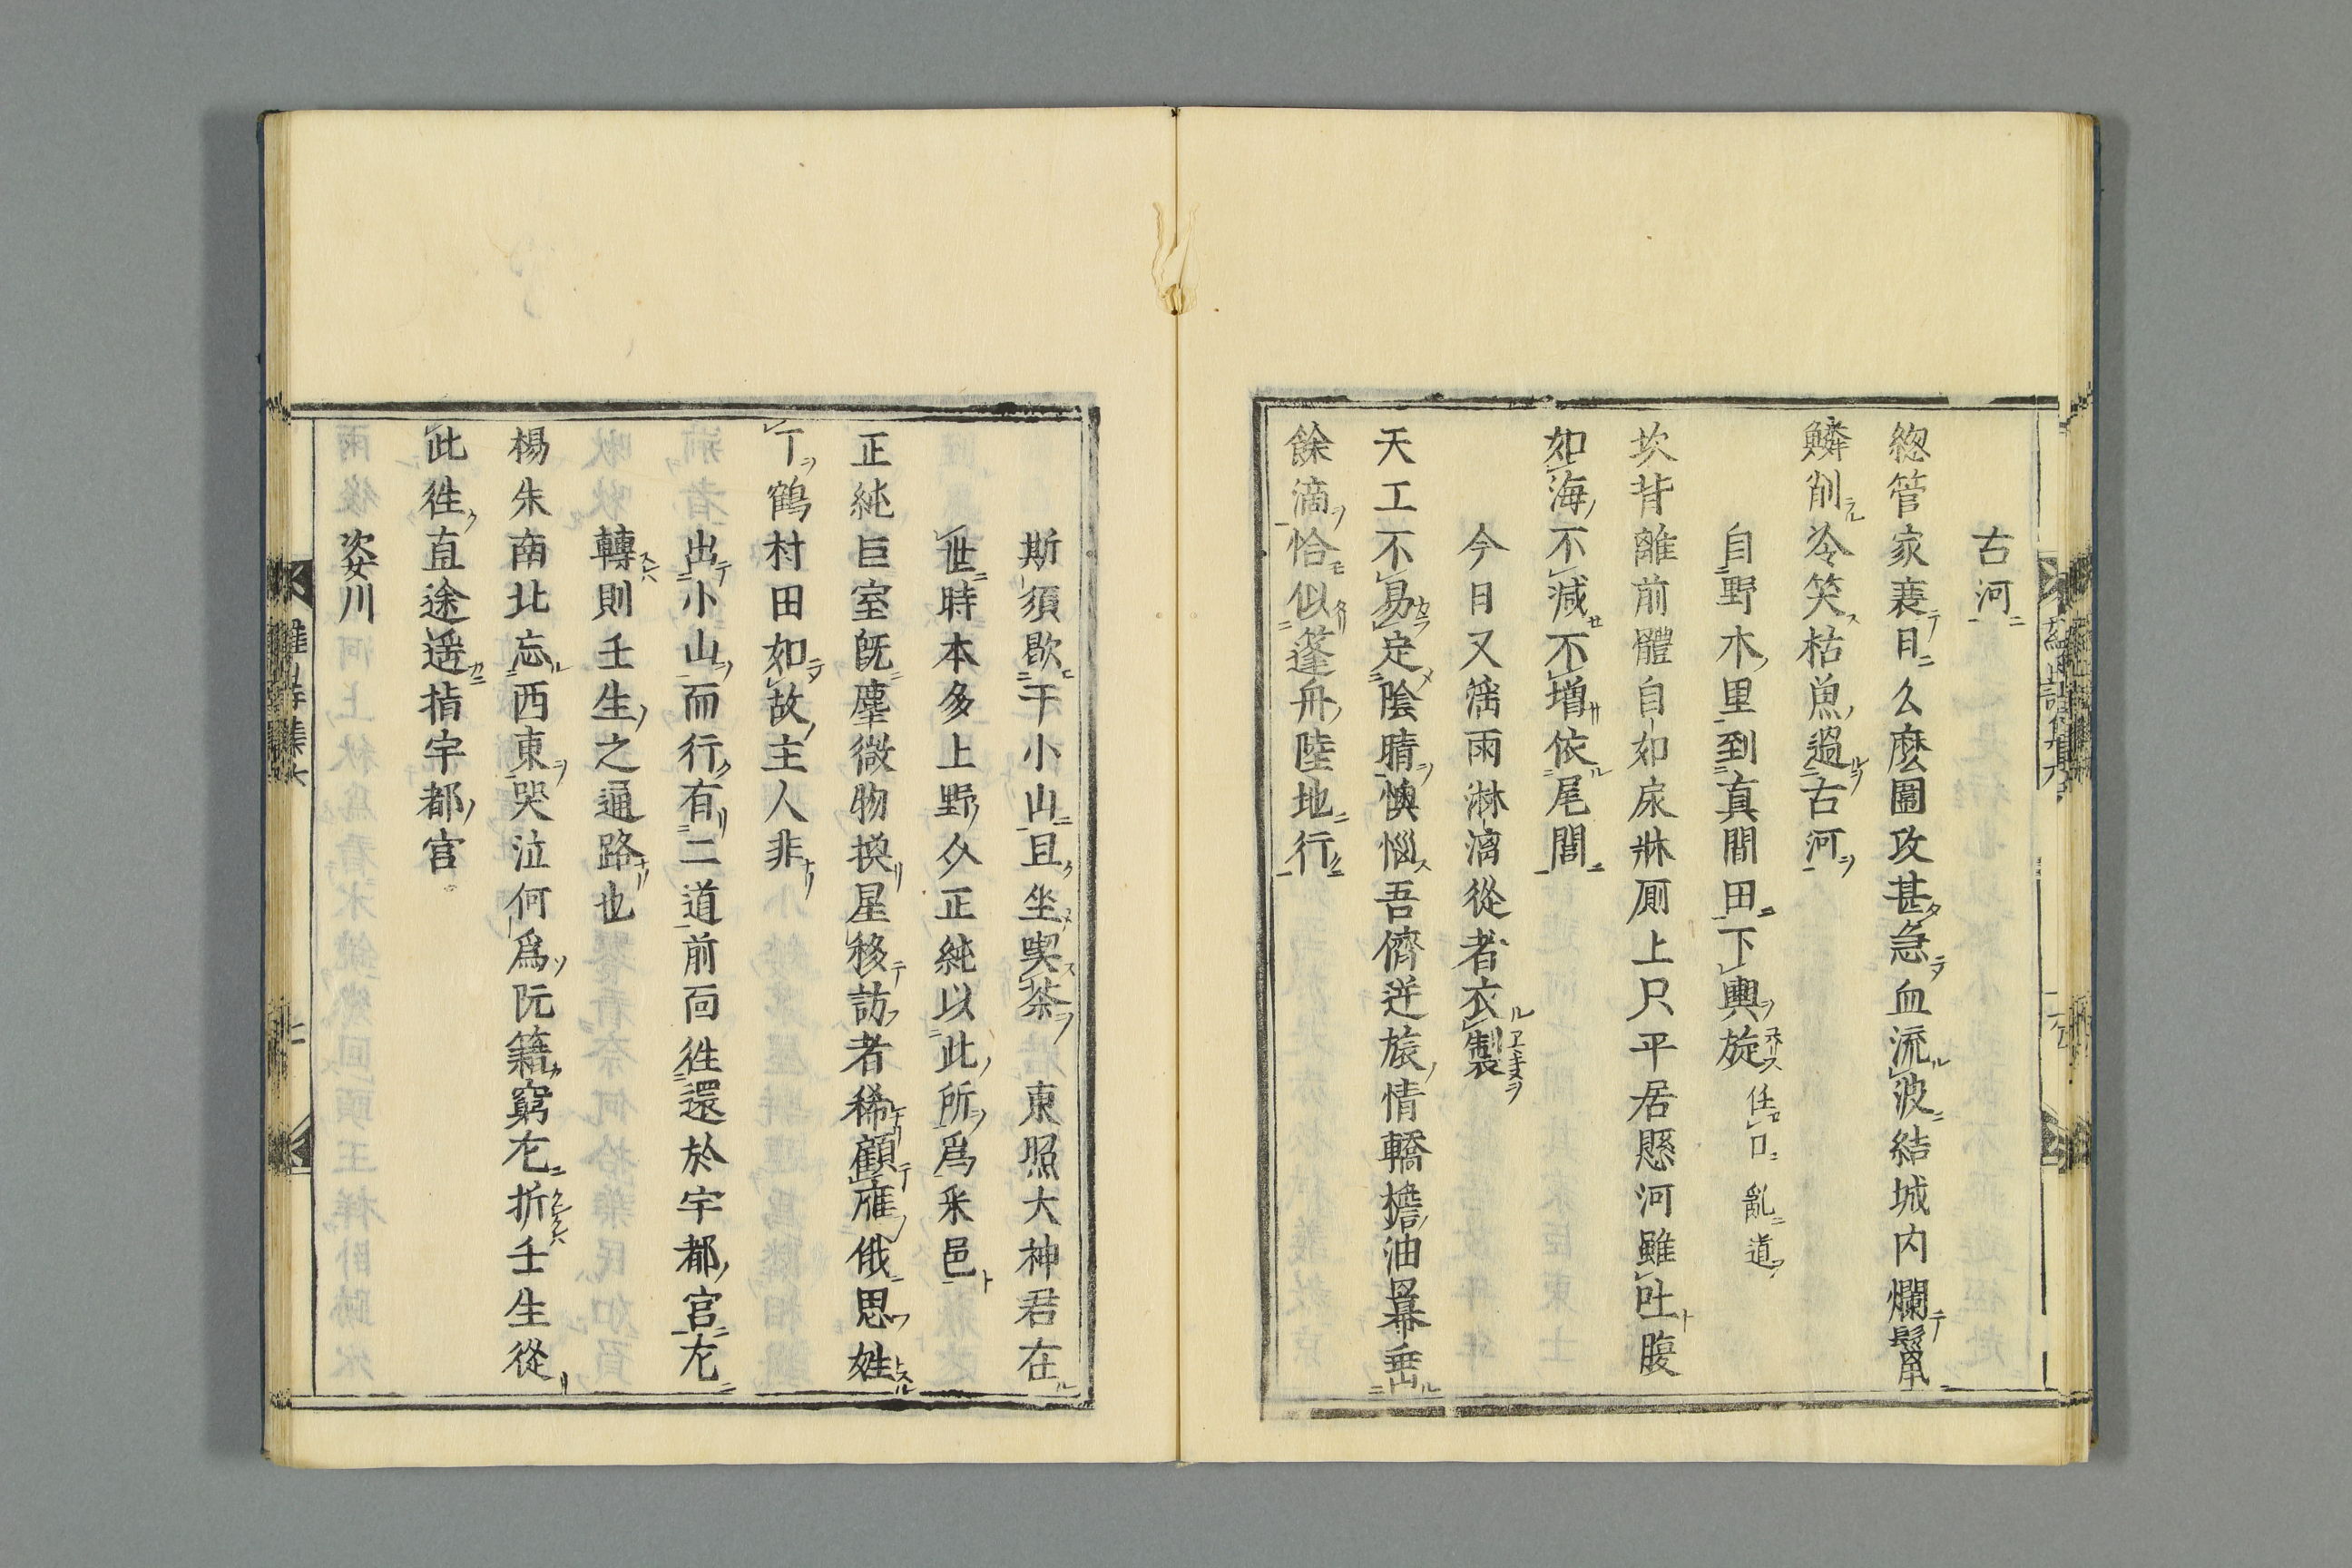 古河
總管家衰日么麼圍攻甚急血流波結城内爛髮
鱗削冷笑枯魚過古河
自野木里到真間田下輿旋 任口 亂道
坎背離前體自如尿牀厠上只平居懸河雖吐腹
如海不減不増依尾閭
今日又滛雨淋漓從者衣製
天工不易定陰晴懊惱吾儕逆旅情轎擔油幕垂
餘滴恰似篷舟陸地行
斯須歇于小山且坐喫茶 東照大神君在
世時本多上野介正純以此所爲釆邑
正純巨室旣塵微物換星移訪者稀顧雁俄思姓
丁鶴村田如故主人非
出小山而行有二道前面徃還於宇都宮左
轉則壬生之通路也
楊朱南北忘西東哭泣何爲阮籍窮左折壬生從
此徃直途遥指宇都宮
姿川